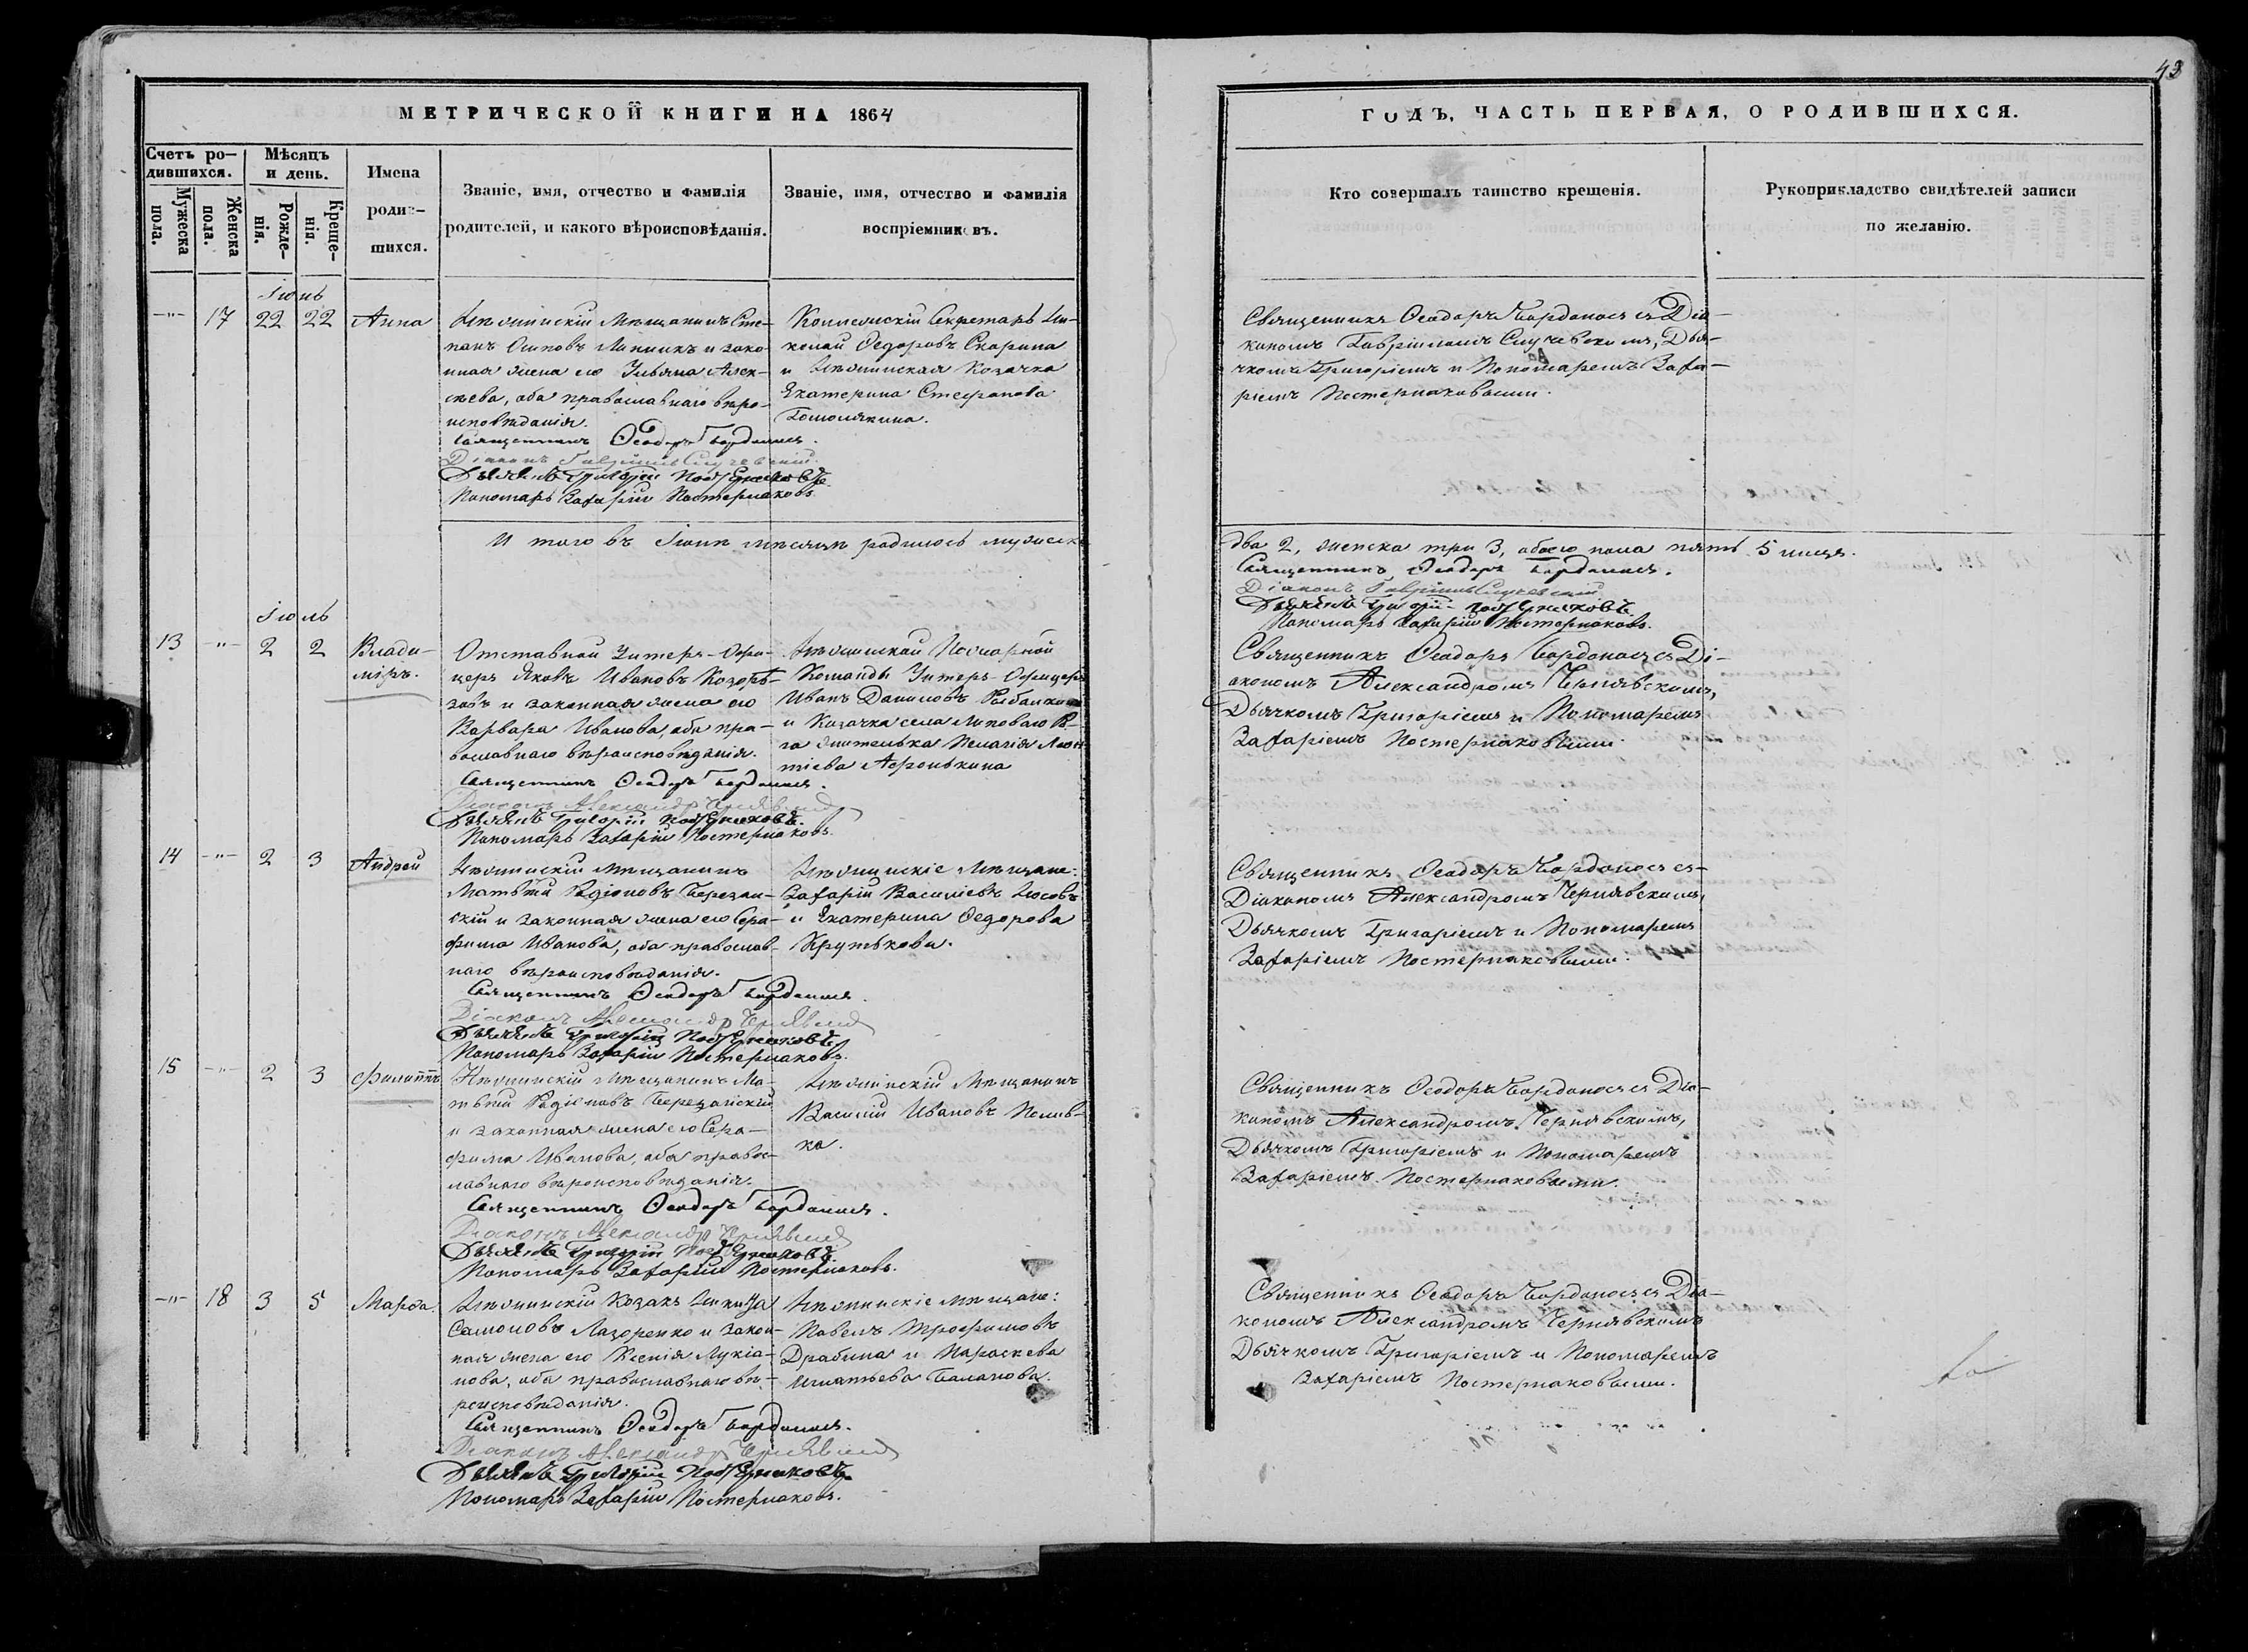 43
МЕТРИЧЕСКОЙ КНИГИ НА 1864
ГОДЪ, ЧАСТЬ ПЕРВАЯ, О РОДИВШИХСЯ.
Счетъ ро-
дившихся.
Мужеска
пола.
Женска
пола.
Мѣсяцъ
и день.
Рожде-
нія.
Креще-
нія.
Имена
родив-
шихся.
Званіе, имя, отчество и фамилія
родителей, и какого вѣроисповѣданія.
Званіе, имя, отчество и фамилія
воспріемниковъ.
Кто совершалъ таинство крещенія.
Рукоприкладство свидѣтелей записи
по желанію.
Іюнь
-"- 17 22 22 Анна
Нѣжинскій Мѣщанинъ Сте-
панъ Осиповъ и зако-
нная жена его Ульяна Алек-
сѣева, оба православнаго вѣро-
исповѣданія.
Священникъ Ѳеодоръ Бордоносъ.
Діаконъ Гавріилъ Случевскій.
Дьячекъ Григорій Постернаковъ.
Пономарь Захарій Постернаковъ.
Коллежскій Секретарь Ни-
колай Ѳедоровъ Скорина
и Нѣжинская Козачка
Екатерина Стефанова
Священникъ Ѳеодоръ Бордоносъ съ Діа-
кономъ Гавріиломъ Случевскимъ, Дья-
чкомъ Григоріемъ и Пономаремъ Заха-
ріемъ Постернаковыми.
И того въ Іюнѣ мѣсяцѣ родилось мужеска
два 2, женска три 3, обоего пола пять 5 лицъ.
Священникъ Ѳеодоръ Бордоносъ.
Діаконъ Гавріилъ Случевскій.
Дьячекъ Григорій Постернаковъ.
Пономарь Захарій Постернаковъ.
Іюль
13 -"- 2 2 Влади-
міръ.
Отставной Унтеръ-Офи-
церъ Яковъ Ивановъ
и законная жена его
Варвара Иванова, оба пра-
вославнаго вѣроисповѣданія.
Священникъ Ѳеодоръ Бордоносъ.
Діаконъ Александръ Чернявскій
Дьячекъ Григорій Постернаковъ.
Пономарь Захарій Постернаковъ.
Нѣжинской Пожарной
Команды Унтеръ-Офицеръ
Иванъ Даниловъ
и Козачка села Липоваго Ро-
га жителька Пелагія Леон-
тіева Афонькина
Священникъ Ѳеодоръ Бордоносъ съ Ді-
акономъ Александромъ Чернявскимъ,
Дьячкомъ Григоріемъ и Пономаремъ
Захаріемъ Постернаковыми.
14 -"- 2 3 Андрей
Нѣжинскій Мѣщанинъ
Матвѣй Родіоновъ Березан-
скій и законная жена его Сера-
фима Иванова, оба православ-
наго вѣроисповѣданія.
Священникъ Ѳеодоръ Бордоносъ.
Діаконъ Александръ Чернявскій
Дьячекъ Григорій Постернаковъ.
Пономарь Захарій Постернаковъ.
Нѣжинскіе Мѣщане:
Захарій Василіевъ
и Екатерина Ѳедорова
Крутькова.
Священникъ Ѳеодоръ Бордоносъ съ
Діакономъ Александромъ Чернявскимъ,
Дьячкомъ Григоріемъ и Пономаремъ
Захаріемъ Постернаковыми.
15 -"- 2 3 Филиппъ
Нѣжинскій Мѣщанинъ Ма-
твѣй Родіоновъ Березанскій
и законная жена его Сера-
фима Иванова, оба правос-
лавнаго вѣроисповѣданія.
Священникъ Ѳеодоръ Бордоносъ.
Діаконъ Александръ Чернявскій
Дьячекъ Григорій Постернаковъ.
Пономарь Захарій Постернаковъ.
Нѣжинскій Мѣщанинъ
Василій Ивановъ
Священникъ Ѳеодоръ Бордоносъ съ Діа-
кономъ Александромъ Чернявскимъ,
Дьячкомъ Григоріемъ и Пономаремъ
Захаріемъ Постернаковыми.
-"- 18 3 5 Марфа.
Нѣжинскій Козакъ Никита
Самоновъ Лазоренко и закон-
ная жена его Ксенія Лукіа-
нова, оба православнаго вѣ-
роисповѣданія.
Священникъ Ѳеодоръ Бордоносъ.
Діаконъ Александръ Чернявскій
Дьячекъ Григорій Постернаковъ.
Пономарь Захарій Постернаковъ.
Нѣжинскіе Мѣщане:
Павелъ Трофимовъ
Драбина и Параскева
Игнатьева Баланова.
Священникъ Ѳеодоръ Бордоносъ съ Діа-
кономъ Александромъ Чернявскимъ
Дьячкомъ Григоріемъ и Пономаремъ
Захаріемъ Постернаковыми.